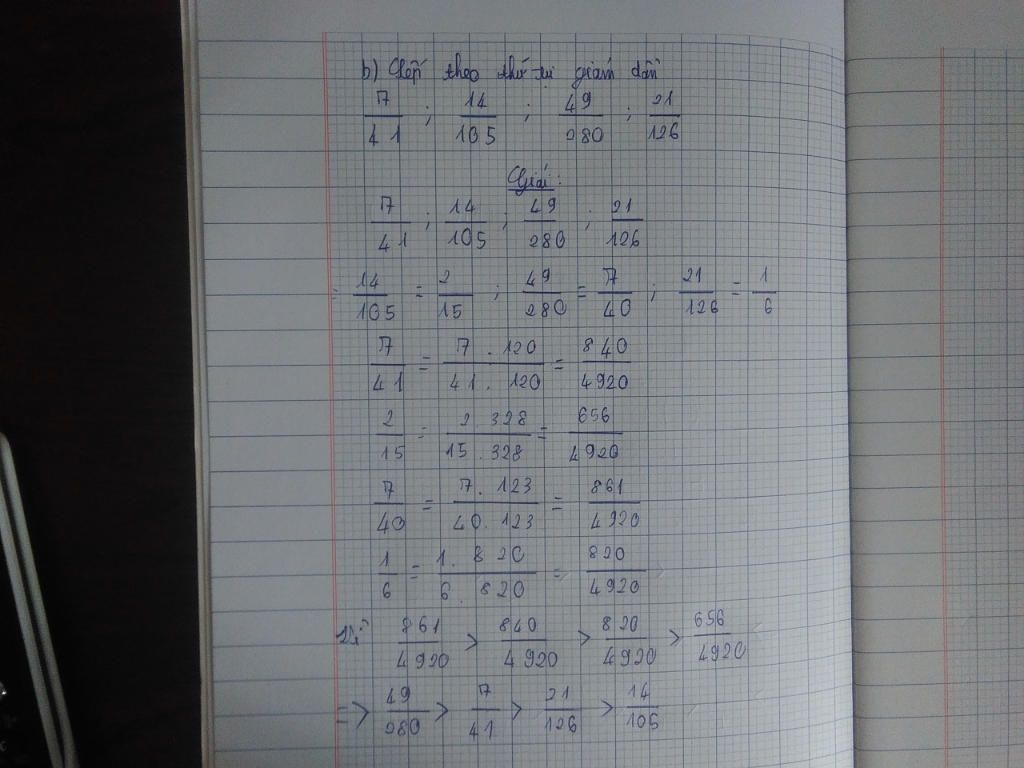 b) Xếp theo thứ tự giảm dần
7/41 ; 14/105 ; 49/280 ; 21/126
Giải:
7/41 ; 14/105 ; 49/280 ; 21/126
= 14/105 = 2/15 ; 49/280 = 7/40 ; 21/126 = 1/6
7/41 = 7 . 120/41 . 120 = 840/4920
2/15 = 2 . 328/15 . 328 = 656/4920
7/40 = 7 . 123/40 . 123 = 861/4920
1/6 = 1 . 820/6 . 820 = 820/4920
Vì 861/4920 > 840/4920 > 820/4920 > 656/4920
=> 49/280 > 7/41 > 21/126 > 14/105